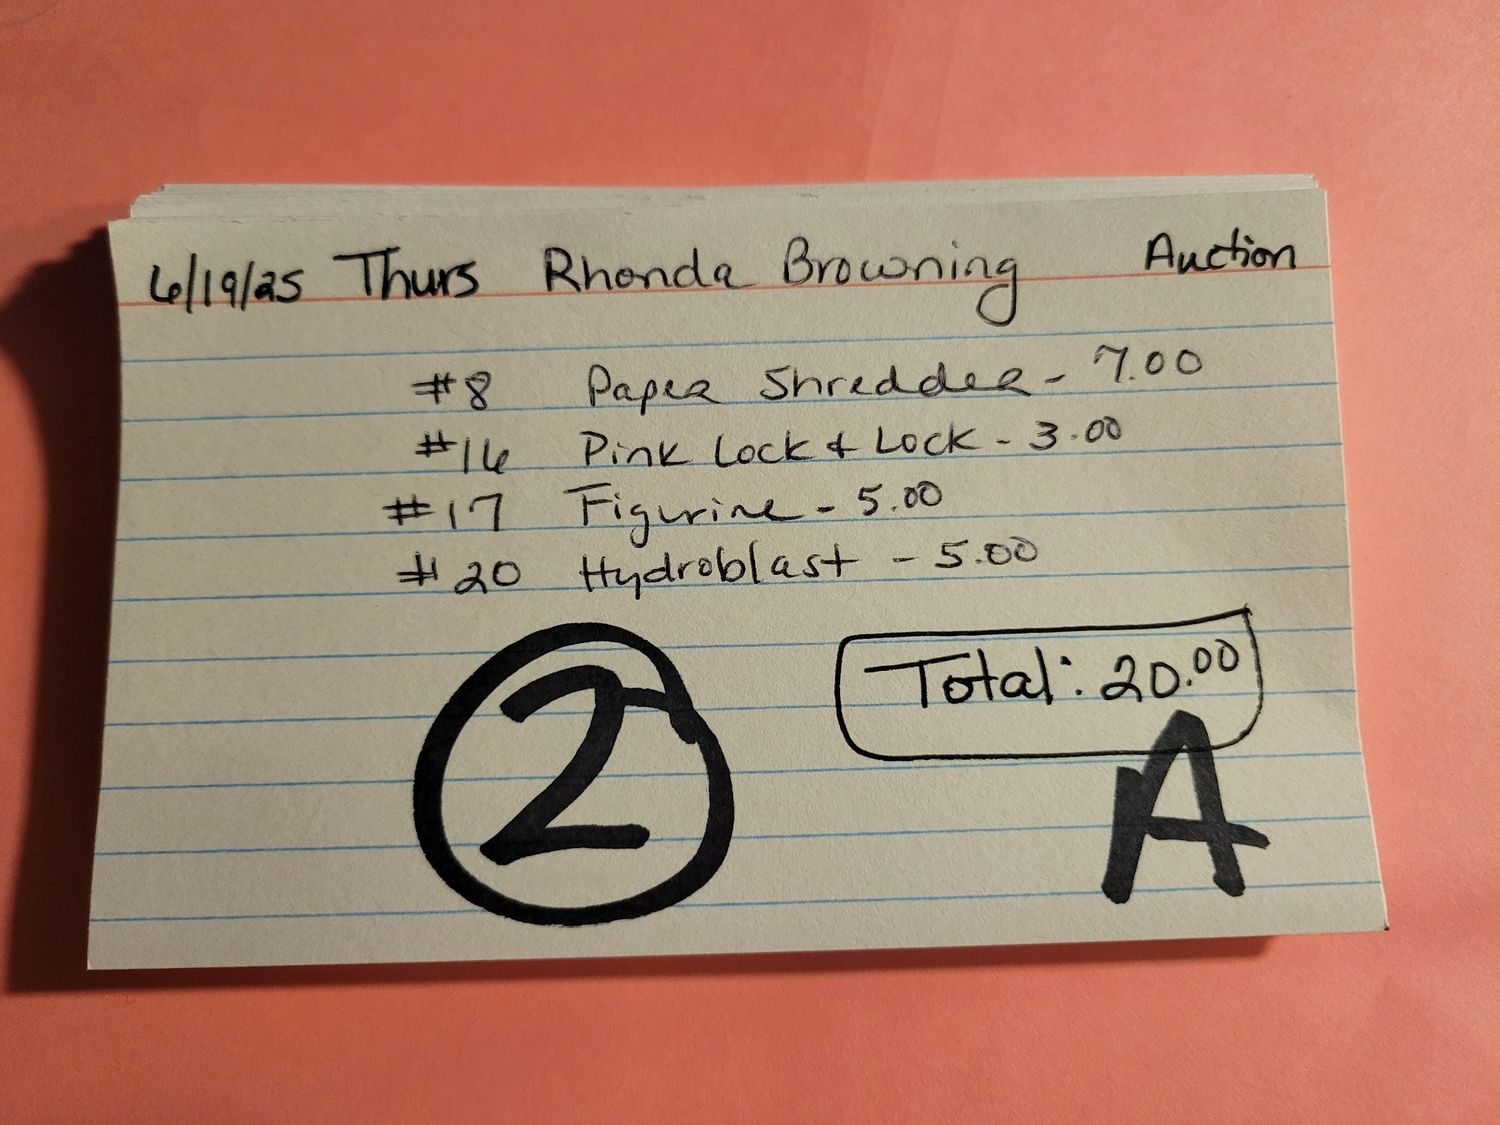 6/19/25 Thurs Rhonda Browning Auction
#8 Paper Shredder - 7.00
#16 Pink Lock & Lock - 3.00
#17 Figurine - 5.00
#20 Hydroblast - 5.00
Total: 20.00
2
A